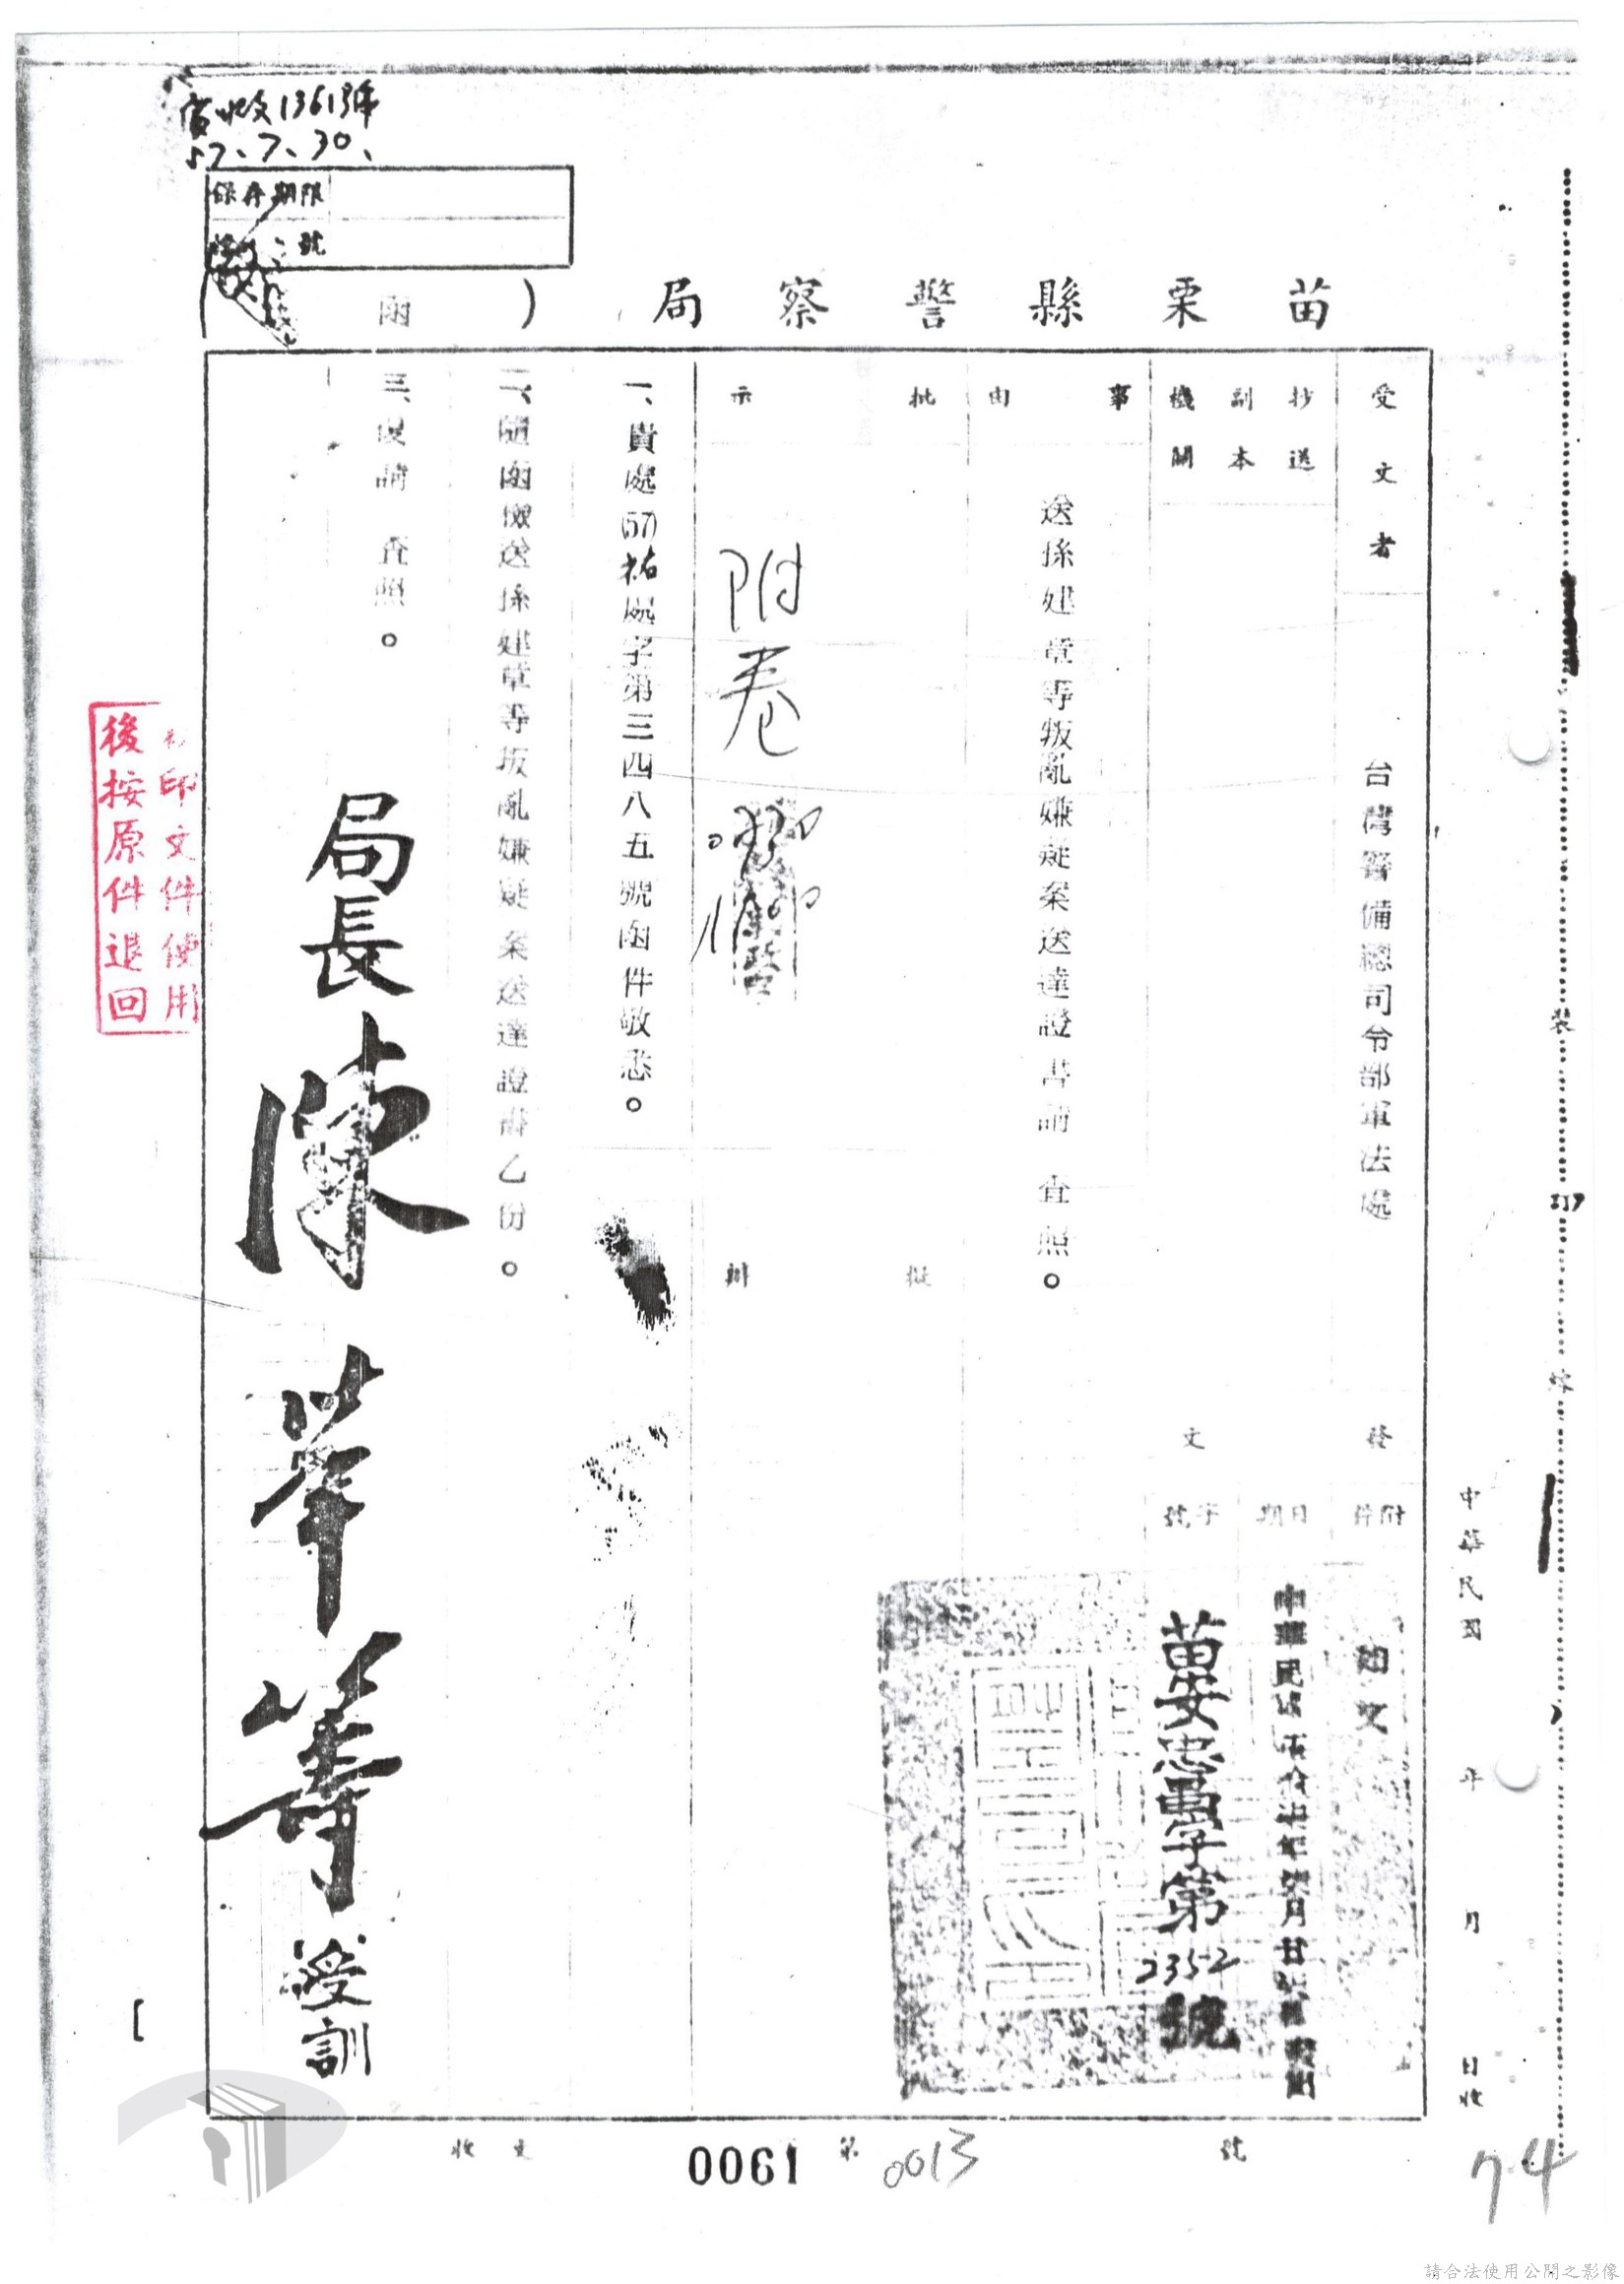 當收文13613號
57、7、30、
保存期限
號
苗栗縣警察局(函)
受文者
台灣警備總司令部軍法處
抄送
副本
機關
事由
送孫建章等叛亂嫌疑案送達證書請 查照。
批示
附卷
擬辦
發文
附件
如文
日期
中華民國
字號
苗安忠
字第
2352
號
一、貴處(57)祐處字第三四八五號函件敬悉。
二、隨函檢送孫建章等叛亂嫌疑案送達證書乙份。
三、復請 查照。
局長
陳
訓
印文件使用
後按原件退回
裝
訂
線
中華民國 年 月 日收
收文
0061
第
0013
號
74
請合法使用公開之影像